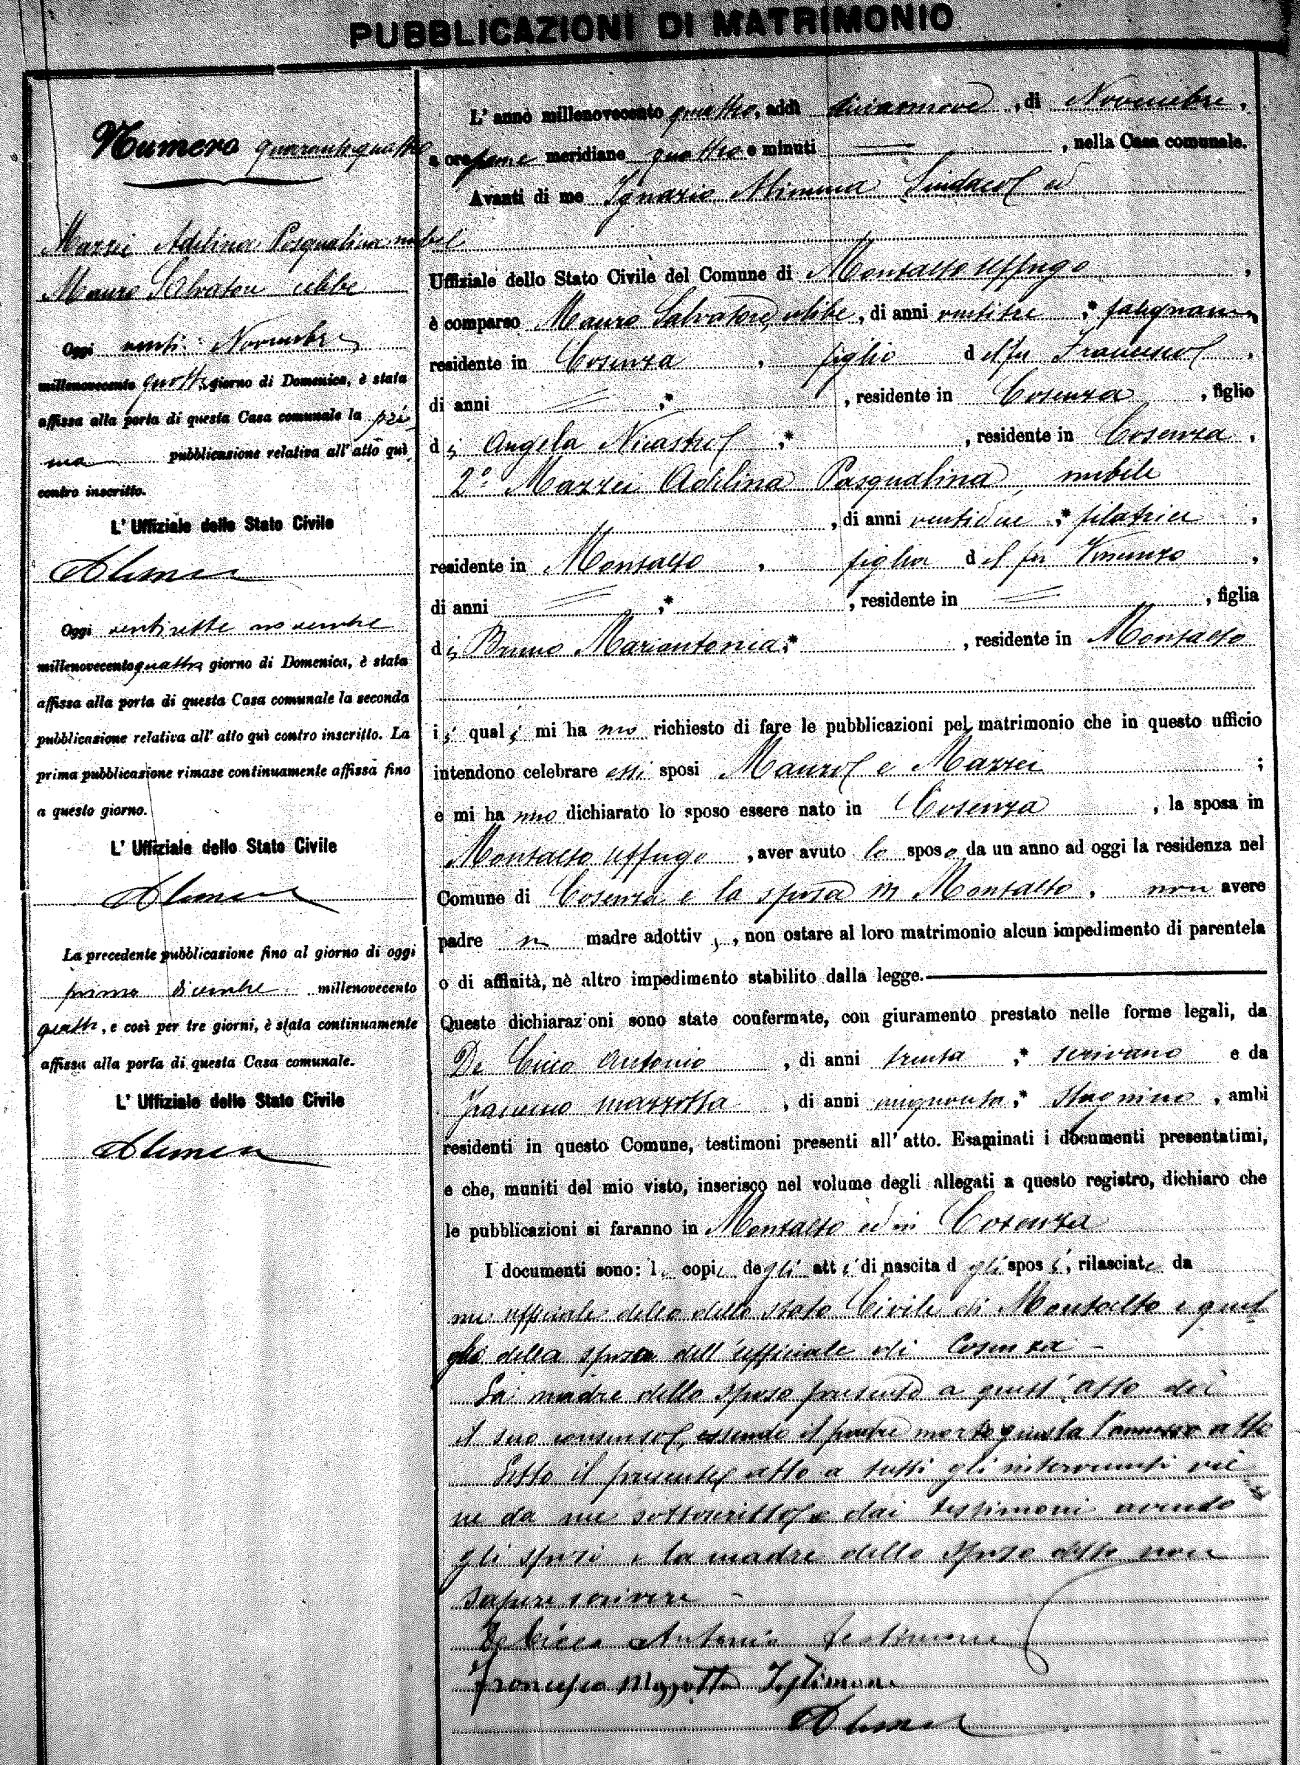 PUBBLICAZIONI DI MATRIMONIO
Numero quarantaquattro
Mazzei Adelina Pasqualina nubile
Mauro Salvatore celibe
Oggi venti Novembre
millenovecento quattro, giorno di Domenica, è stata
affissa alla porta di questa Casa comunale la pri-
ma pubblicazione relativa all'atto quì
contro inscritto.
L'Uffiziale dello Stato Civile
Oggi ventisette novembre
millenovecento quattro giorno di Domenica, è stata
affissa alla porta di questa Casa comunale la seconda
pubblicazione relativa all'atto quì contro inscritto. La
prima pubblicazione rimase continuamente affissa fino
a questo giorno.
L'Uffiziale dello Stato Civile
La precedente pubblicazione fino al giorno di oggi
primo dicembre millenovecento
quattro, e così per tre giorni, è stata continuamente
affissa alla porta di questa Casa comunale.
L'Uffiziale dello Stato Civile
L'anno millenovecento quattro, addì diciannove, di Novembre,
a ore pome meridiane quattro e minuti ___, nella Casa comunale.
Avanti di me Ignazio Sindaco ed
Uffiziale dello Stato Civile del Comune di Montalto Uffugo,
è comparso Mauro Salvatore, celibe, di anni ventitre, * falegname,
residente in Cosenza, figlio del fu Francesco,
di anni ___, * residente in Cosenza, figlio
di Angela Nicastro, * , residente in Cosenza,
2° Mazzei Adelina Pasqualina, nubile
, di anni ventidue, * filatrice,
residente in Montalto, figlia del fu Vincenzo,
di anni ___, * , residente in ___, figlia
di Bruno Mariantonia, * , residente in Montalto
i quali mi hanno richiesto di fare le pubblicazioni pel matrimonio che in questo ufficio
intendono celebrare essi sposi Mauro e Mazzei ;
e mi hanno dichiarato lo sposo essere nato in Cosenza, la sposa in
Montalto Uffugo, aver avuto lo sposo da un anno ad oggi la residenza nel
Comune di Cosenza e la sposa in Montalto, non avere
padre nè madre adottivi, non ostare al loro matrimonio alcun impedimento di parentela
o di affinità, nè altro impedimento stabilito dalla legge.
Queste dichiarazioni sono state confermate, con giuramento prestato nelle forme legali, da
De Cicco Antonio, di anni trenta, * scrivano e da
Francesco Mazzotta, di anni cinquanta, * stagnino, ambi
residenti in questo Comune, testimoni presenti all'atto. Esaminati i documenti presentatimi,
e che, muniti del mio visto, inserisco nel volume degli allegati a questo registro, dichiaro che
le pubblicazioni si faranno in Montalto ed in Cosenza
I documenti sono: le copie degli atti di nascita degli sposi, rilasciate da
me ufficiale dello dello stato Civile di Montalto e quel
della sposa dell'ufficiale di Cosenza
La madre dello sposo presente a quest'atto dà
il suo consenso, essendo il padre morto giusta l'annesso atto
Letto il presente atto a tutti gli intervenuti vie
ne da me sottoscritto e dai testimoni avendo
gli sposi e la madre dello sposo detto non
sapere scrivere
De Cicco Antonio testimone
Francesco Mazzotta Testimone